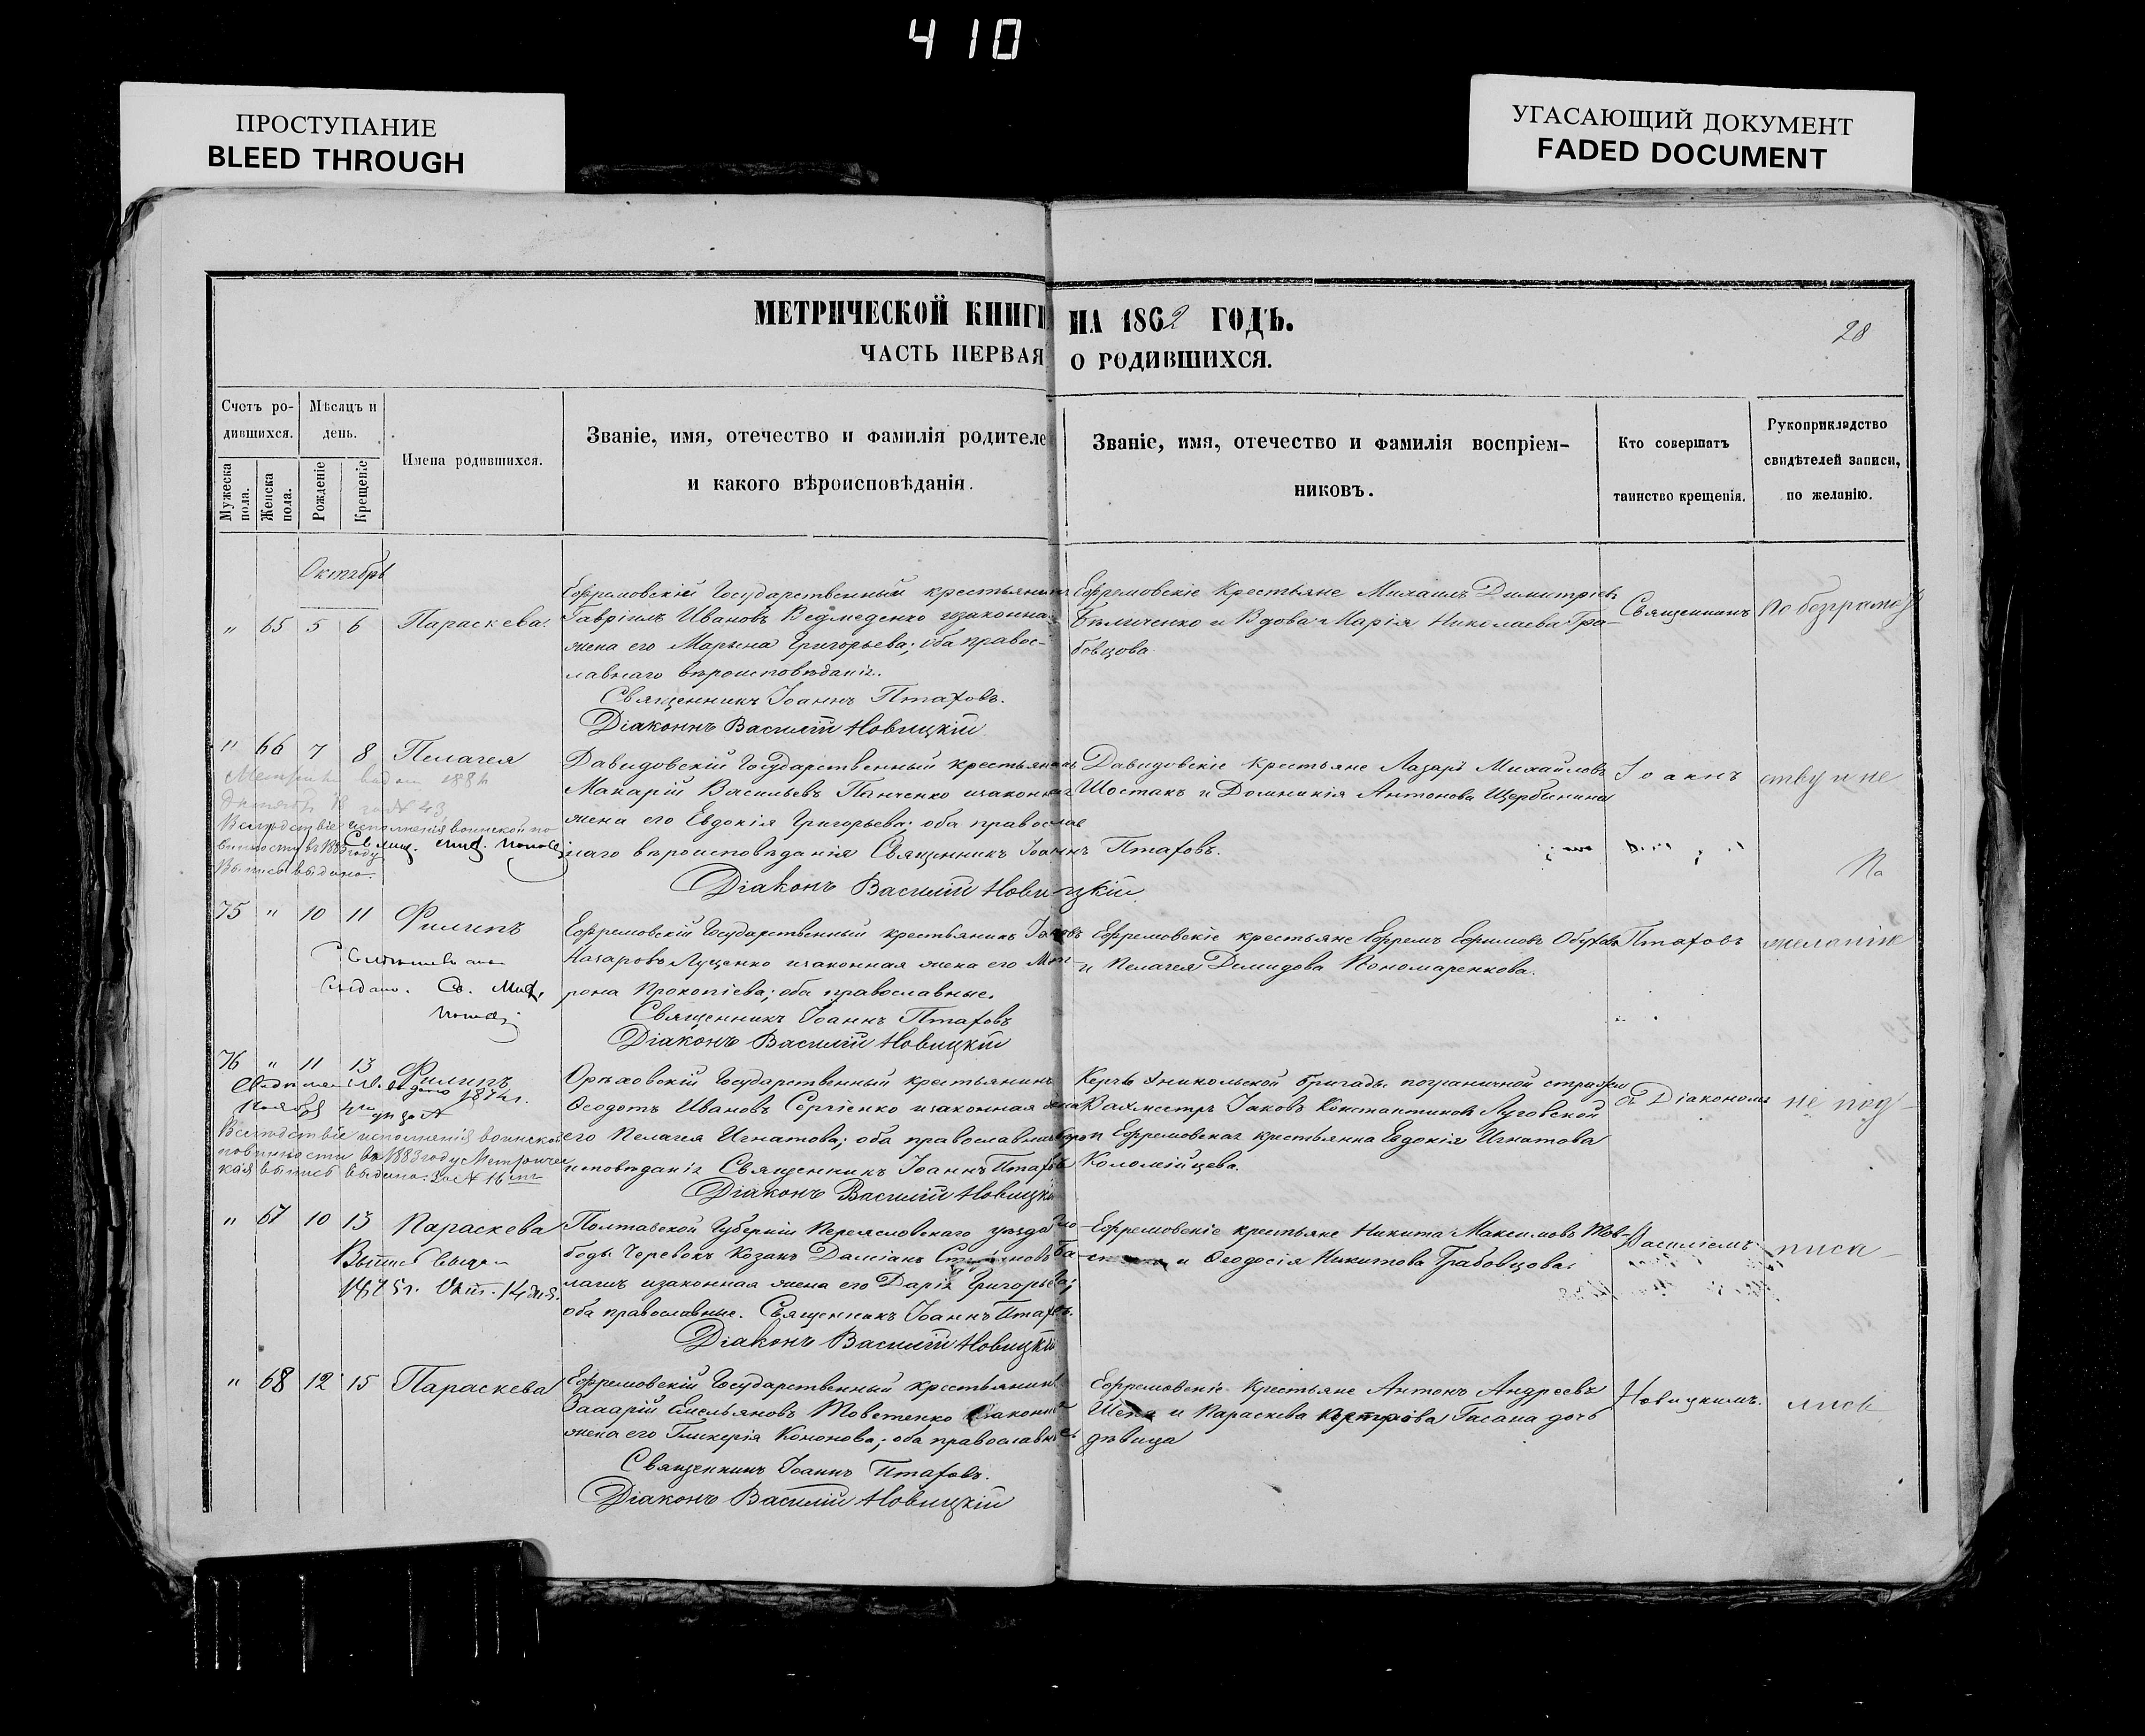 410
ПРОСТУПАНИЕ
BLEED THROUGH
УГАСАЮЩИЙ ДОКУМЕНТ
FADED DOCUMENT
МЕТРИЧЕСКОЙ КНИГИ НА 1862 ГОДЪ.
ЧАСТЬ ПЕРВАЯ О РОДИВШИХСЯ.
28
Счетъ ро-
дившихся.
Мѣсяцъ и
день.
Мужеска пола.
Женска пола.
Рожденіе
Крещеніе
Имена родившихся.
Званіе, имя, отечество и фамилія родителе
и какого вѣроисповѣданія.
Званіе, имя, отечество и фамилія воспріем-
никовъ.
Кто совершатъ
таинство крещенія.
Рукоприкладство
свидѣтелей записи,
по желанію.
Октябрь
" 65 5 6 Параскева
Ефремовскій Государственный крестьянинъ
Гавріилъ Ивановъ Ведмеденко изаконная
жена его Марьяна Григорьева; оба правос-
лавнаго вѣроисповѣданія.
Священникъ Іоаннъ Птаховъ.
Діаконъ Василій Новицкій
Ефремовскіе Крестьяне Михаилъ Димитріевъ
Бѣличенко и Вдова Марія Николаева Гра-
бовцова
Священникъ
По безграмот
" 66 7 8 Пелагея
Давидовскій Государственный крестьянинъ
Макарій Васильевъ Панченко изаконная
жена его Евдокія Григорьева; оба православ
наго вѣроисповѣданія Священникъ Іоаннъ Птаховъ.
Діаконъ Василій Новицкій
Давидовскіе крестьяне Лазарь Михайловъ
Шостакъ и Домникія Антонова Щербинина
Іоаннъ
ству и не
№ 43,
Вслѣдствіе исполненія воинской по
винности въ 1883 году
Выпись выдана.
75 " 10 11 Филипъ
Ефремовскій Государственный крестьянинъ Іаковъ
Назаровъ Луценко изаконная жена его Мат-
рона Прокопіева; оба православные.
Священникъ Іоаннъ Птаховъ
Діаконъ Василій Новицкій
Ефремовскіе крестьяне Ефремъ Ефимовъ Обуховъ
и Пелагея Демидова Пономаренкова.
Птаховъ
По
желанію
76 " 11 13 Филипъ
Орѣховскій Государственный крестьянинъ
Ѳеодотъ Ивановъ Сергіенко изаконная жена
его Пелагея Игнатова; оба православнаго вѣро
исповѣданія Священникъ Іоаннъ Птаховъ
Діаконъ Василій Новицкій
Керчь Еникольской бригады пограничной стражи
Вахмистръ Іаковъ Константиновъ Луговской
и Ефремовская крестьянка Евдокія Игнатова
Коломійцева.
съ Діакономъ
не под-
Вслѣдствіе исполненія воинской
повинности въ 1883 году Метричес
кая выпись выдана. За № 16
" 67 10 13 Параскева
Полтавской Губерніи Переясловскаго уѣзда
Козакъ Даміанъ
изаконная жена его Дарія Григорьева;
оба православные. Священникъ Іоаннъ Птаховъ.
Діаконъ Василій Новицкій
Ефремовскіе крестьяне Никита Максимовъ Тов-
и Ѳеодосія Никитова Грабовцова.
Василіемъ
писа-
68 12 15 Параскева
Ефремовскій Государственный крестьянинъ
Захарій Емельяновъ Товстенко изаконная
жена его Гликерія Кононова; оба православные
Священникъ Іоаннъ Птаховъ.
Діаконъ Василій Новицкій
Ефремовскіе Крестьяне Антонъ Андреевъ
и Параскева дочь
дѣвица
Новицкимъ.
лись